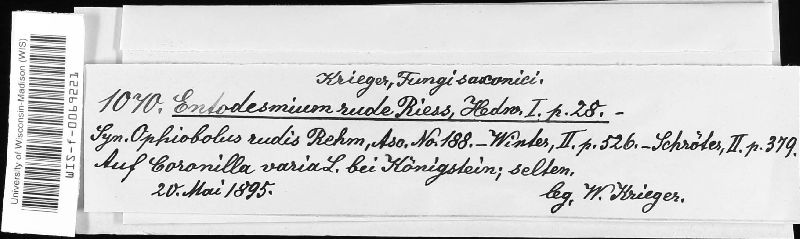 University of Wisconsin-Madison (WIS)
WIS-f-0069221
Krieger, Fungi saxonici.
1070. Entodesmium rude Riess, Hedw. I. p. 28. -
Syn. Ophiobolus rudis Rehm, Asc. No. 188. - Winter, II. p. 526. - Schröter, II. p. 379.
Auf Coronilla varia L. bei Königstein; selten.
20. Mai 1895. leg. W. Krieger.